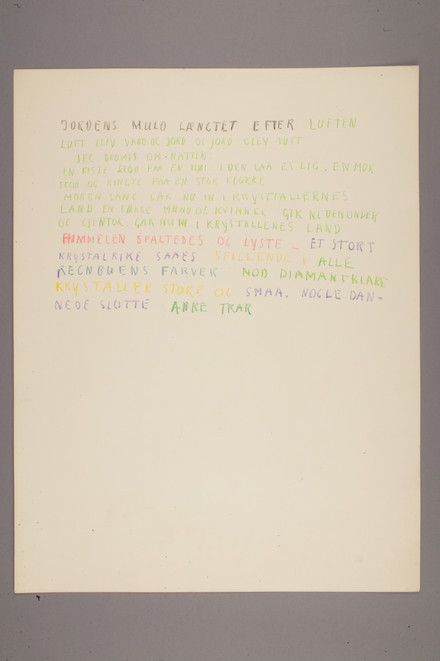 JORDENS MULD LÆNGTET EFTER LUFTEN
LUFT BLEV VAND OG JORD OG JORD BLEV LUFT
JEG DRØMTE OM NATTEN:
EN KISTE STOD PAA EN HØI I DEN LAA ET LIG. EN MOR
STOD OG RINGTE PAA EN STOR KLOKKE
MOREN SANG GAA NU IN I KRYSTALLERNES
LAND. EN RÆKKE MÆND OG KVINNER GIK NEDENUNDER
OG GJENTOK: GAA NU IN I KRYSTALLENES LAND
HIMMELEN SPALTEDES OG LYSTE _ ET STORT
KRYSTALRIKE SAAES SPILLENDE I ALLE
REGNBUENS FARVER MOD DIAMANTKLARE
KRYSTALLER STORE OG SMAA. NOGLE DAN-
NEDE SLOTTE ANRE TRÆR